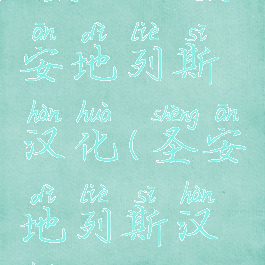 ān dì liè sī
安地列斯
hàn huà shèng ān
汉化(圣安
dì liè sī hàn
地列斯汉